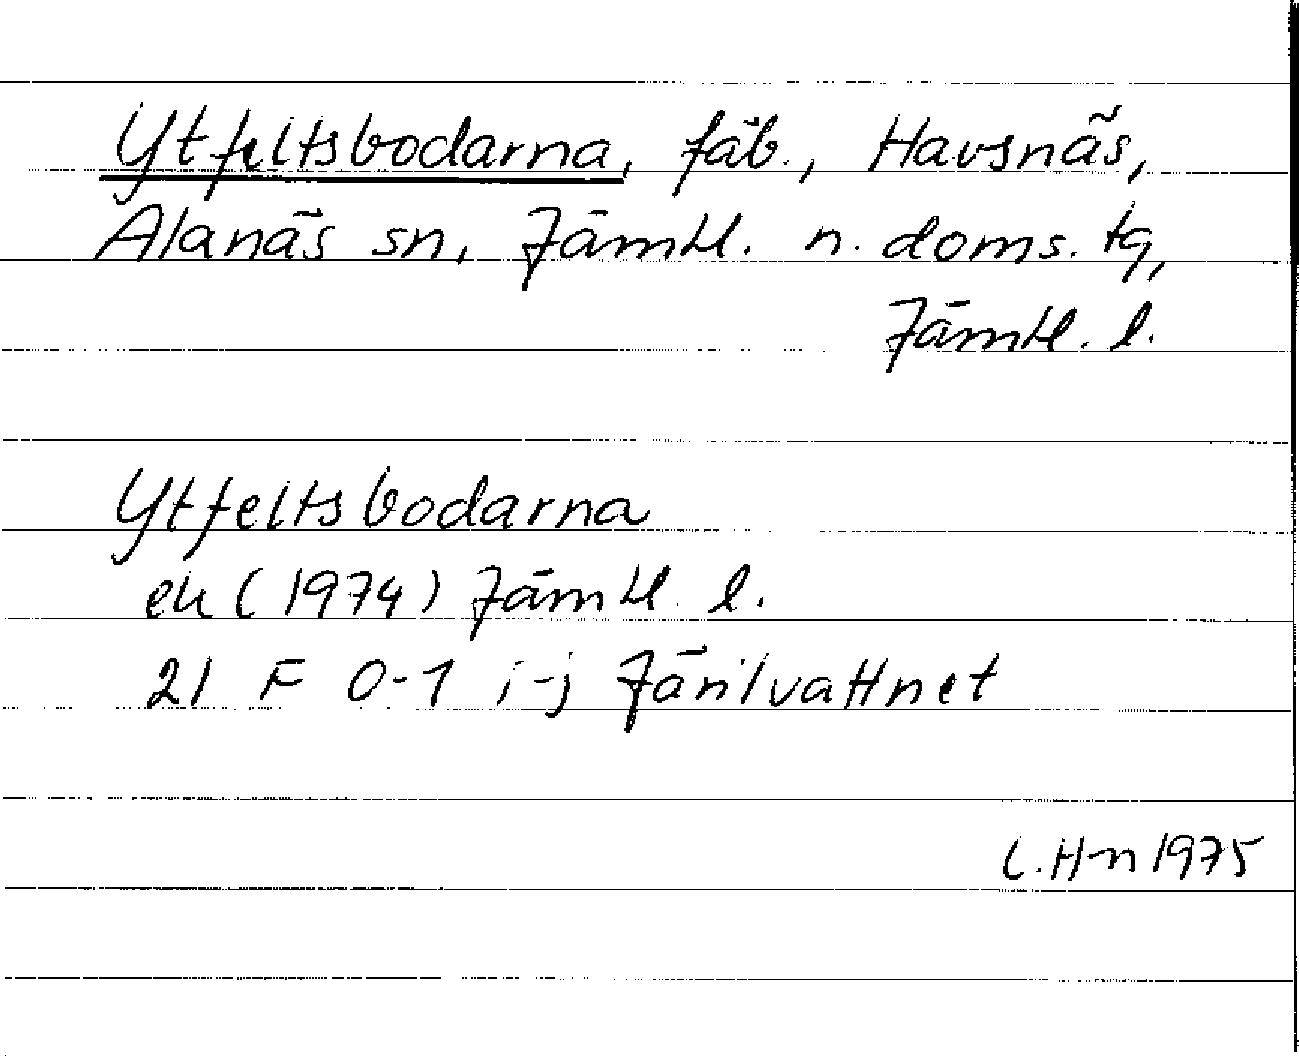 Ytfeltsbodarna, fäb., Havsnäs,
Alanäs sn, Jämtl. n. doms. tg,
Jämtl. l.
Ytfeltsbodarna
ek (1974) Jämtl. l.
21 F 0-1 i-j Järilvattnet
C. H-n 1975